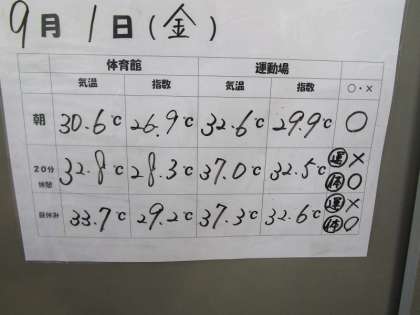 9月1日(金)
体育館 運動場
気温 指数 気温 指数 ○・×
朝 30.6℃ 26.9℃ 32.6℃ 29.9℃ ○
20分休憩 32.8℃ 28.3℃ 37.0℃ 32.5℃ 運× 体○
昼休み 33.7℃ 29.2℃ 37.3℃ 32.6℃ 運× 体○